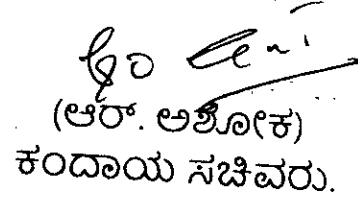 (ಆರ್. ಅಶೋಕ)
ಕಂದಾಯ ಸಚಿವರು.